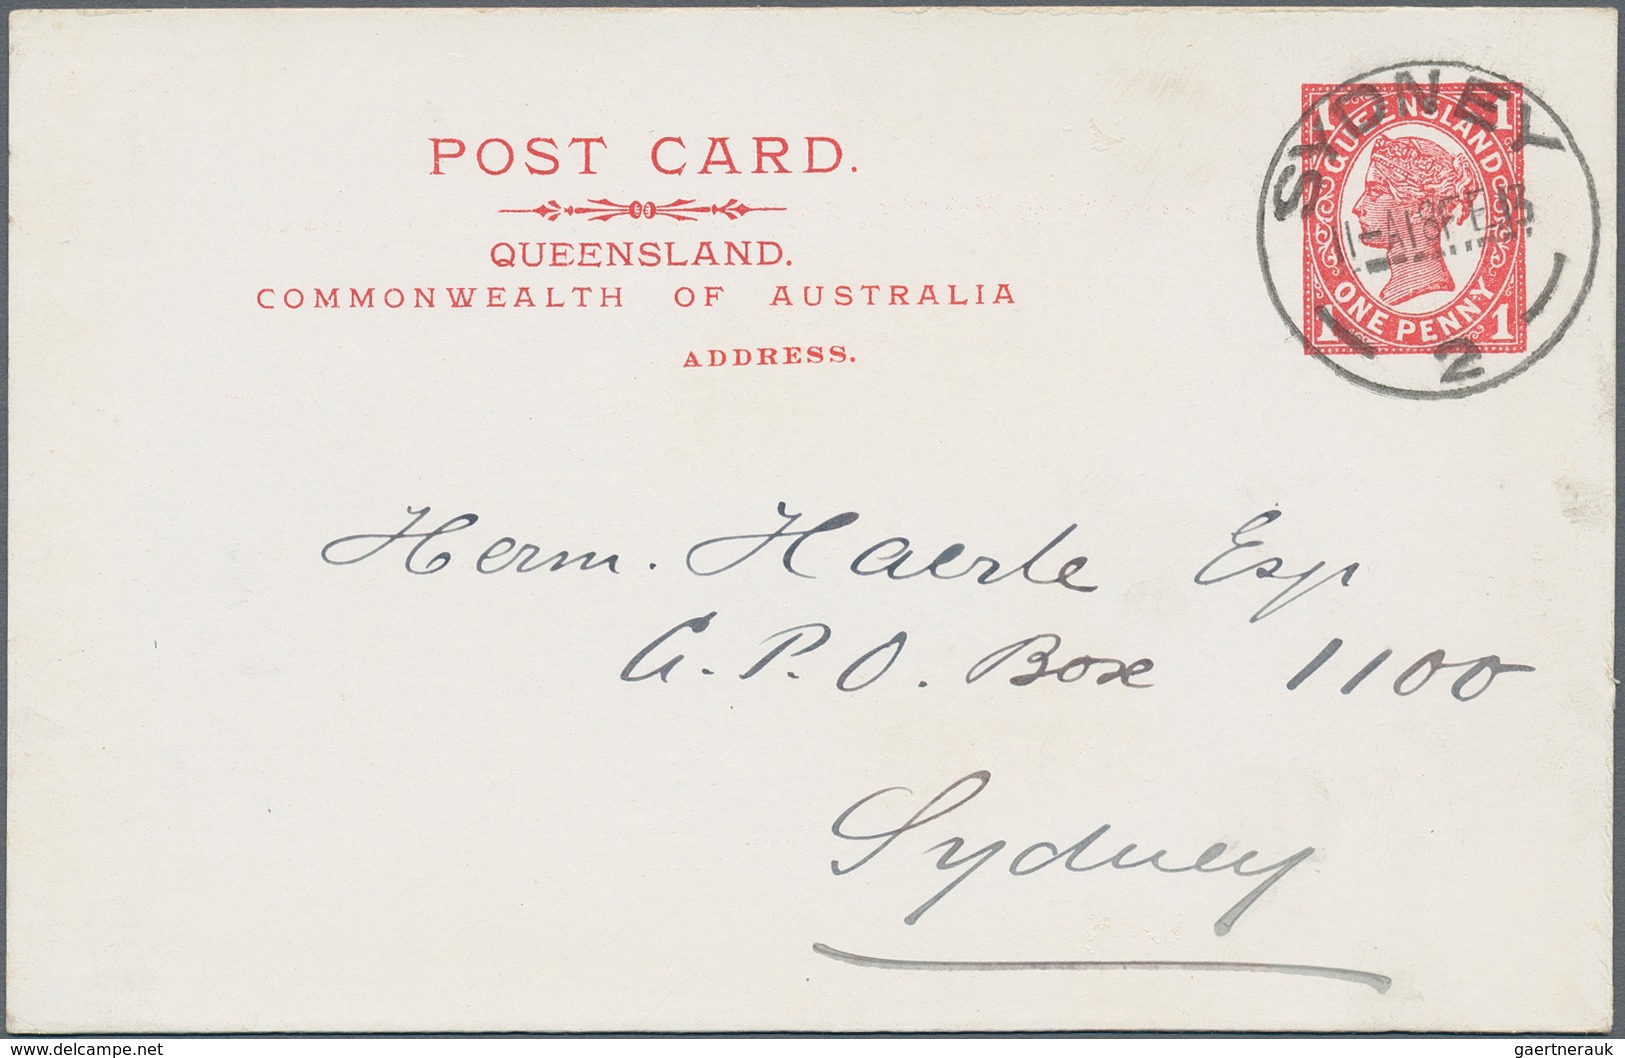 POST CARD.
QUEENSLAND.
COMMONWEALTH OF AUSTRALIA
ADDRESS.
1 1
QUEENSLAND
ONE PENNY
1 1
SYDNEY
2
Herm. Haerle Esq
G.P.O. Box 1100
Sydney
www.delcampe.net
gaertnerauk